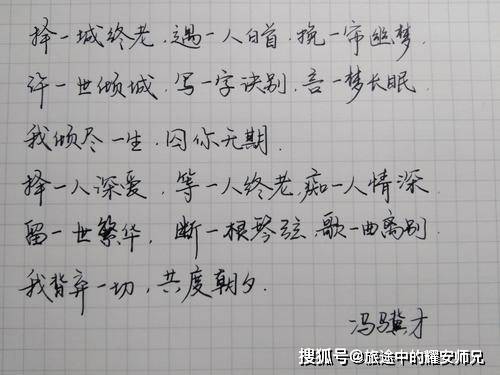 择一城终老,遇一人白首.挽一帘幽梦.
许一世倾城.写一字诀别.言一梦长眠.
我倾尽一生.囚你无期.
择一人深爱,等一人终老,痴一人情深
留一世繁华,断一根琴弦,歌一曲离别.
我背弃一切,共度朝夕.
冯骥才
搜狐号@旅途中的耀安师兄